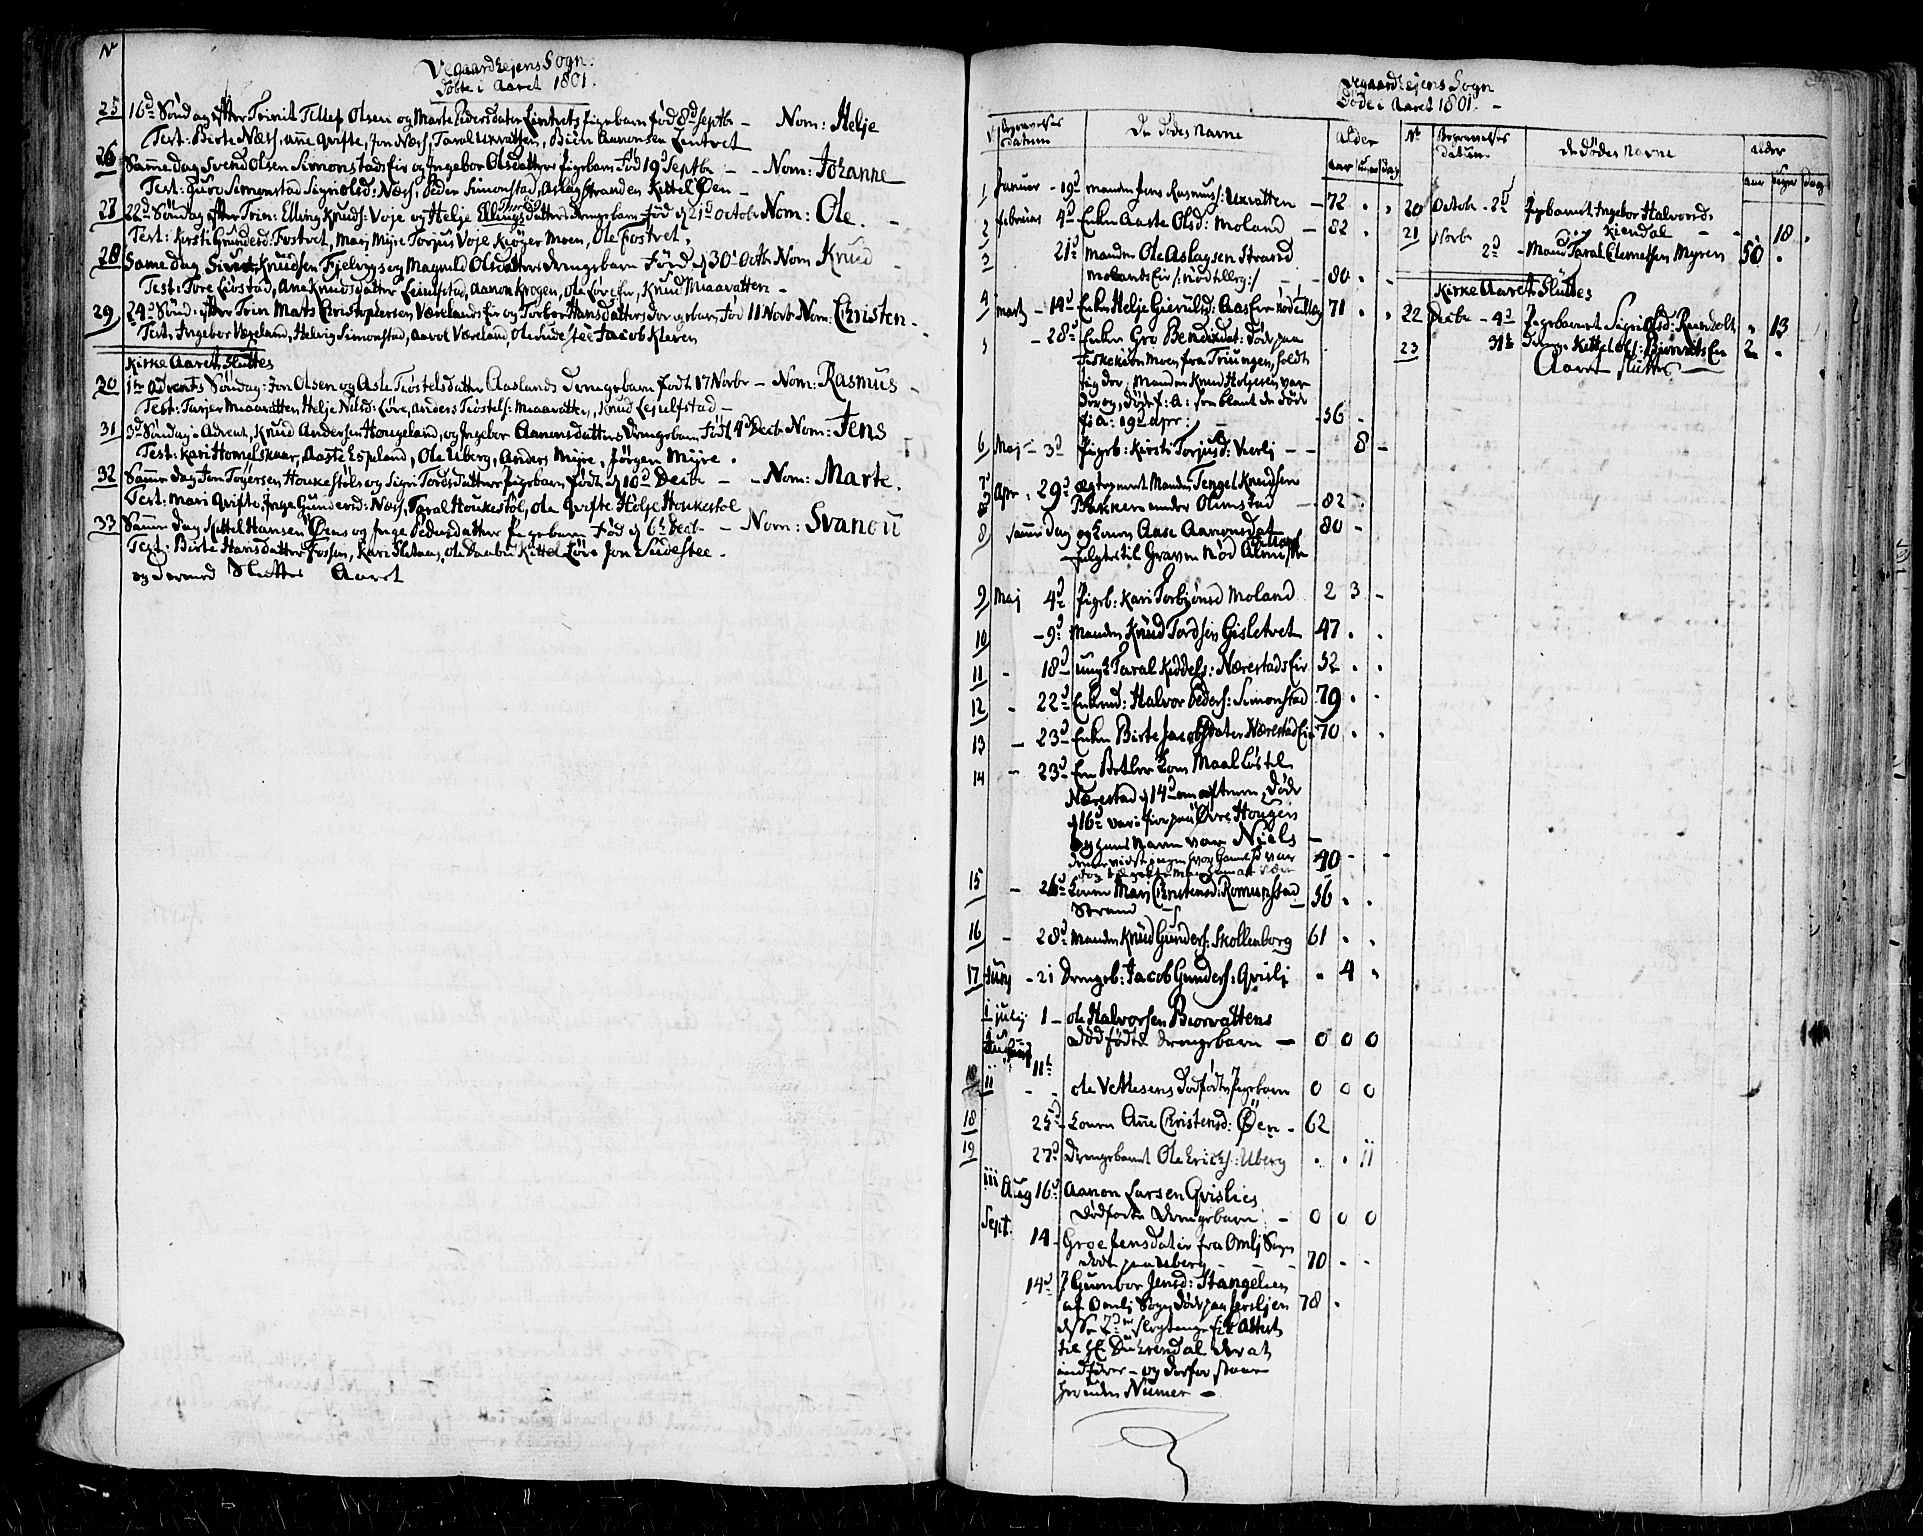 N
Vegaardheiens Sogn.
Døbte i Aaret 1801.
25 16d Søndag efter Trinit Tellef Olsen og Marte Pedersdatter Lientvets Pigebarn fød 8d Septbr - Nom: Helje
Test: Birte Næss, Ane Qvifte, Jon Næss, Taral Uxvatten, Biørn Aanonsen Lientvet
26 Samme dag Svend Olsen Simonstad Eir og Ingebor Olsdatters Pigebarn Fød 19d Septbr - - Nom: Johanne
Test: Guro Simonstad Sigri Olsd: Næss, Peder Simonstad, Aslag Stranden Kittel Øen -
27 22d Søndag efter Trin: Elling Knuds: Voje og Helje datters drengebarn Fød d 21d Octobr Nom: Ole.
Test: Kirsti Gundersd: Fostvet, Mari Mÿre Torjus Voje Moen, Ole Fostvet.
28 Same dag Sivert Knudsen Fjelvigs og Magnild Olsdatters drengebarn Fød d 30d Octbr Nom Knud
Test: Tore Liøstad, Ane Knudsdatter Lejulfstad, Aanon Krogen, Ole Løve Eir, Knud Miaavatten -
29 24d Sønd: efter Trin Mats Christophersen Værelands Eir og Torbor Hansdatters drengebarn Fød 11 Novbr Nom: Christen -
Test: Ingebor Væreland, Helvig Simonstad, Aarol Væreland, Ole Sundestee Jacob Kleven
Kirke Aaret Sluttes
30 1te Advents Søndag: Jon Olsen og Aste Tiøstelsdatter Aaslands Drengebarn født 17 Novbr - Nom: Rasmus -
Test: Tarjer Miaavatten, Helje Nilsd: Løve, Anders Tiøstels: Miaavatten, Knud Lejulfstad -
31 3d Søndag i Advent, Knud Andersen Hougeland, og Ingebor Aanonsdatters Drengebarn Født 4d Decbr Nom: Jens
Test: Kari Homelskaar, Aaste Espeland, Ole Uberg, Anders Mÿre, Jørgen Mÿre.
32 Samme dag Jon Tøgersen Houkestøls og Sigri Toresdatters Pigebarn født d 10d Decbr - - Nom: Marte.
Test: Mari Qvifte, Inge Gundersd: Næss, Taral Houkestøl, Ole Qvifte Helge Houkestøl
33 Samme Dag Kittel Hansen Øens og Inge Pedersdatters Pigebarn Fød d 6te Decbr - Nom: Svanou
Test: Birte Hansdatter Fossen, Kari Sletaas, Ole Kittel Løve Jon Sundestee.
og dermed Sluttes Aaret
Vegaardheiens Sogn
Døde i Aaret 1801. -
Begravelses datum De Dødes Navne Alder
aar uger dag
1 Januar - 19d Manden Jens Rasmus: Uxvatten - 72 . .
2 Februar 4d Enken Aaste Olsd: Moland - 82 . .
3 21d Manden Ole Aslagsen Strand
Molands Eir - 80 . -
4 Marts - 14d Enken Helje Gierulsd: Aas Eir 71 . .
5 - 28d Enken Gro Bendixdat: Død paa
Moen fra Triungen, holdt
sig der, Manden Knud Holjesen var
der og, døde f: A: som blant de døde
f: A: 19d Apr: - 56 -
6 Maj - 3d Pigeb: Kirsti Torjusd: Vierlj - - 8 -
7 Apr: 29d Manden Tengel Knudsen
Bakken under Olimstad - 82 .
8 Samme Dag og Konen Aase Aanonsdat 80 -
fulgtes til Graven
9 Maj 4d Pigeb: Kari Torbiønsd Moland 2 3 -
10 - 9d Manden Knud Tordsen Gisletvet 47 . .
11 - 18d ungk Taral Kiddels: Nærestads Eir 52 . .
12 - 22d Enkmd: Halvor Peders: Simonstad 79 . .
13 - 23d Enken Birte Jacobsdater Nærestad Eir 70 . .
14 - 23d En Betler kom til
Nærestad d 14d om aftenen, døde
d 16d var i fior paa Øvre Hougen
og hans Navn var Niels -
40 - -
15 - 26d Konen Mari Christensd: Romundstad
Strand - 56 . .
16 - 28d Manden Knud Gunders: Skollenborg 61 . .
17 Junj - 21 Drengeb: Jacob Gunders: Qvislj . 4 .
i julij 1 - Ole Halvorsen Biorvattens
dødfødte drengebarn - 0 0 0
11te
ii - - Ole Vetlesens dødfødte Pigebarn 0 0 0
18 25d Konen Ane Christensd: Øen - 62
19 27d Drengebarnet Ole Erichs: Uberg . . 11
iii Aug 16d Aanon Larsen Qvislies
dødfødte drengebarn: - 0 0 0
Sept. 14 - Groe Jensdater fra Omlj Sogn
død paa Uberg - - - 70 . -
14d Gunbor Jensd: Stangelien
af Omlj Sogn døde paa 78 .
disse 2de
til Hr: der at
indføres - og derfor staar
her uden Numer -
No Begravelses datum De Dødes Navne Alder
aar uger dag
20 Octobr - 2d Pigebarnet Ingebor Halvorsd:
Kiendal - - 18 .
21 Novbr 2d - Mand Taral Clemetsen Myren 50 .
Kirke Aaret Sluttes
22 Decbr - 4d Pigebarnet Sigri Olsd: . 13
23 31te Dreng: Kittel Ols: Eir 2 .
Aaret Sluttes